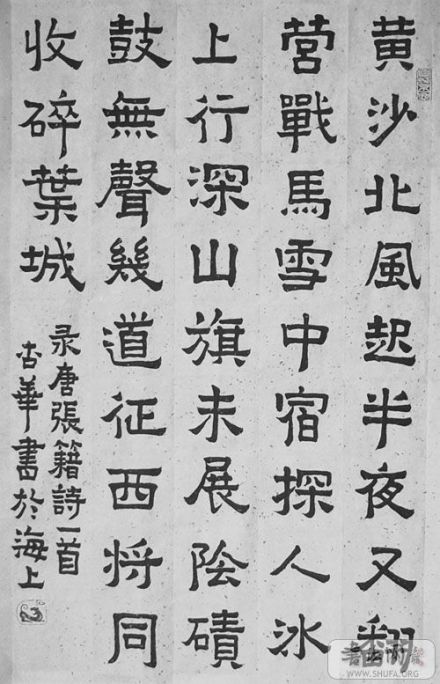 黄沙北風起半夜又翻
營戰馬雪中宿探人冰
上行深山旗未展陰磧
鼓無聲幾道征西將同
收碎葉城
录唐張籍詩一首
杏華書於海上
WWW.SHUFA.ORG